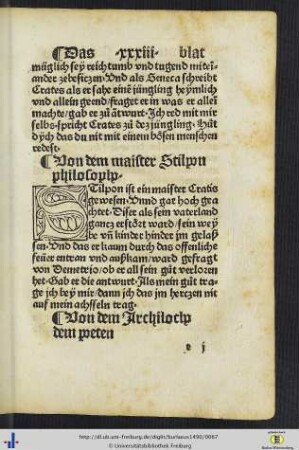 ¶Das xxxiii. blat
müglich sey reichtumb vnd tugend miteī-
ander zebesiczen. Vnd als Seneca schreibt
Crates als er sahe einē jüngling heymlich
vnd allein geend/ fraget er in was er alleī
machte/ gab er zů ātwurt. Ich red mit mir
selbs. spricht Crates zů dez jüngling. Hüt
dych das du nit mit einem bösen menschen
redest.
¶Von dem maister Stilpon
philosophy.
STilpon ist ein maister Cratis
gewesen. Vnnd gat hoch gea
chtet. Diser als sein vaterland
gancz erstört ward/ sein wey
be vn̄ kinder hinder jm gelas
sen. Vnd das er kaum durch das offenliche
feüer entran vnd außkam/ ward gefragt
von Demetrio/ ob er all sein gůt verloren
het. Gab er die antwurt. Als mein gůt tra-
ge ich bey mir/ dann ich das im herczen nit
auf mein achseln trag.
¶Von dem Archiloch
dem poeten
e j
http://dl.ub.uni-freiburg.de/diglit/burlaeus1490/0067
© Universitätsbibliothek Freiburg